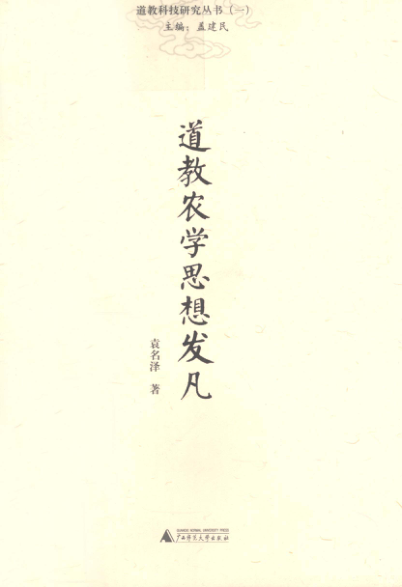 道教科技研究丛书（一）
主编：盖建民
道教农学思想发凡
袁名泽 著
GUANGXI NORMAL UNIVERSITY PRESS
广西师范大学出版社